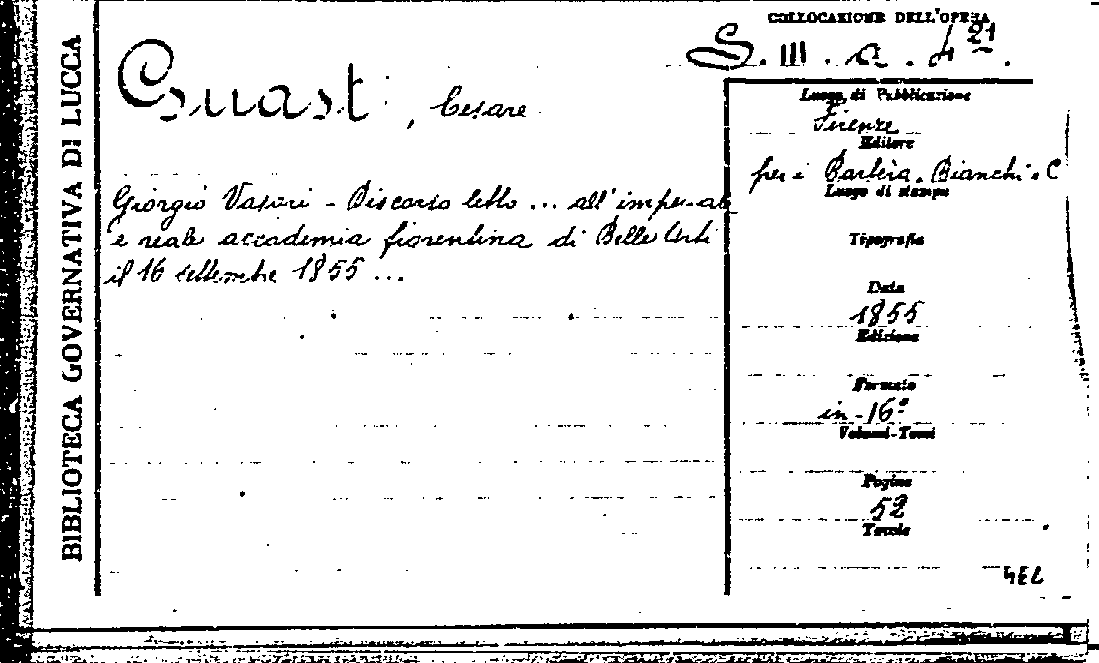 BIBLIOTECA GOVERNATIVA DI LUCCA
COLLOCAZIONE DELL'OPERA
S. III. a. 4 21.
Guasti, Cesare
Giorgio Vasari - Discorso letto ... all'imperiale
e reale accademia fiorentina di Belle Arti
il 16 settembre 1855 ...
Luogo di Pubblicazione
Firenze
Editore
per i Barbèra, Bianchi e C
Luogo di stampa
Tipografia
Data
1855
Edizione
Formato
in-16°
Volumi-Tomi
Pagine
52
Tavole